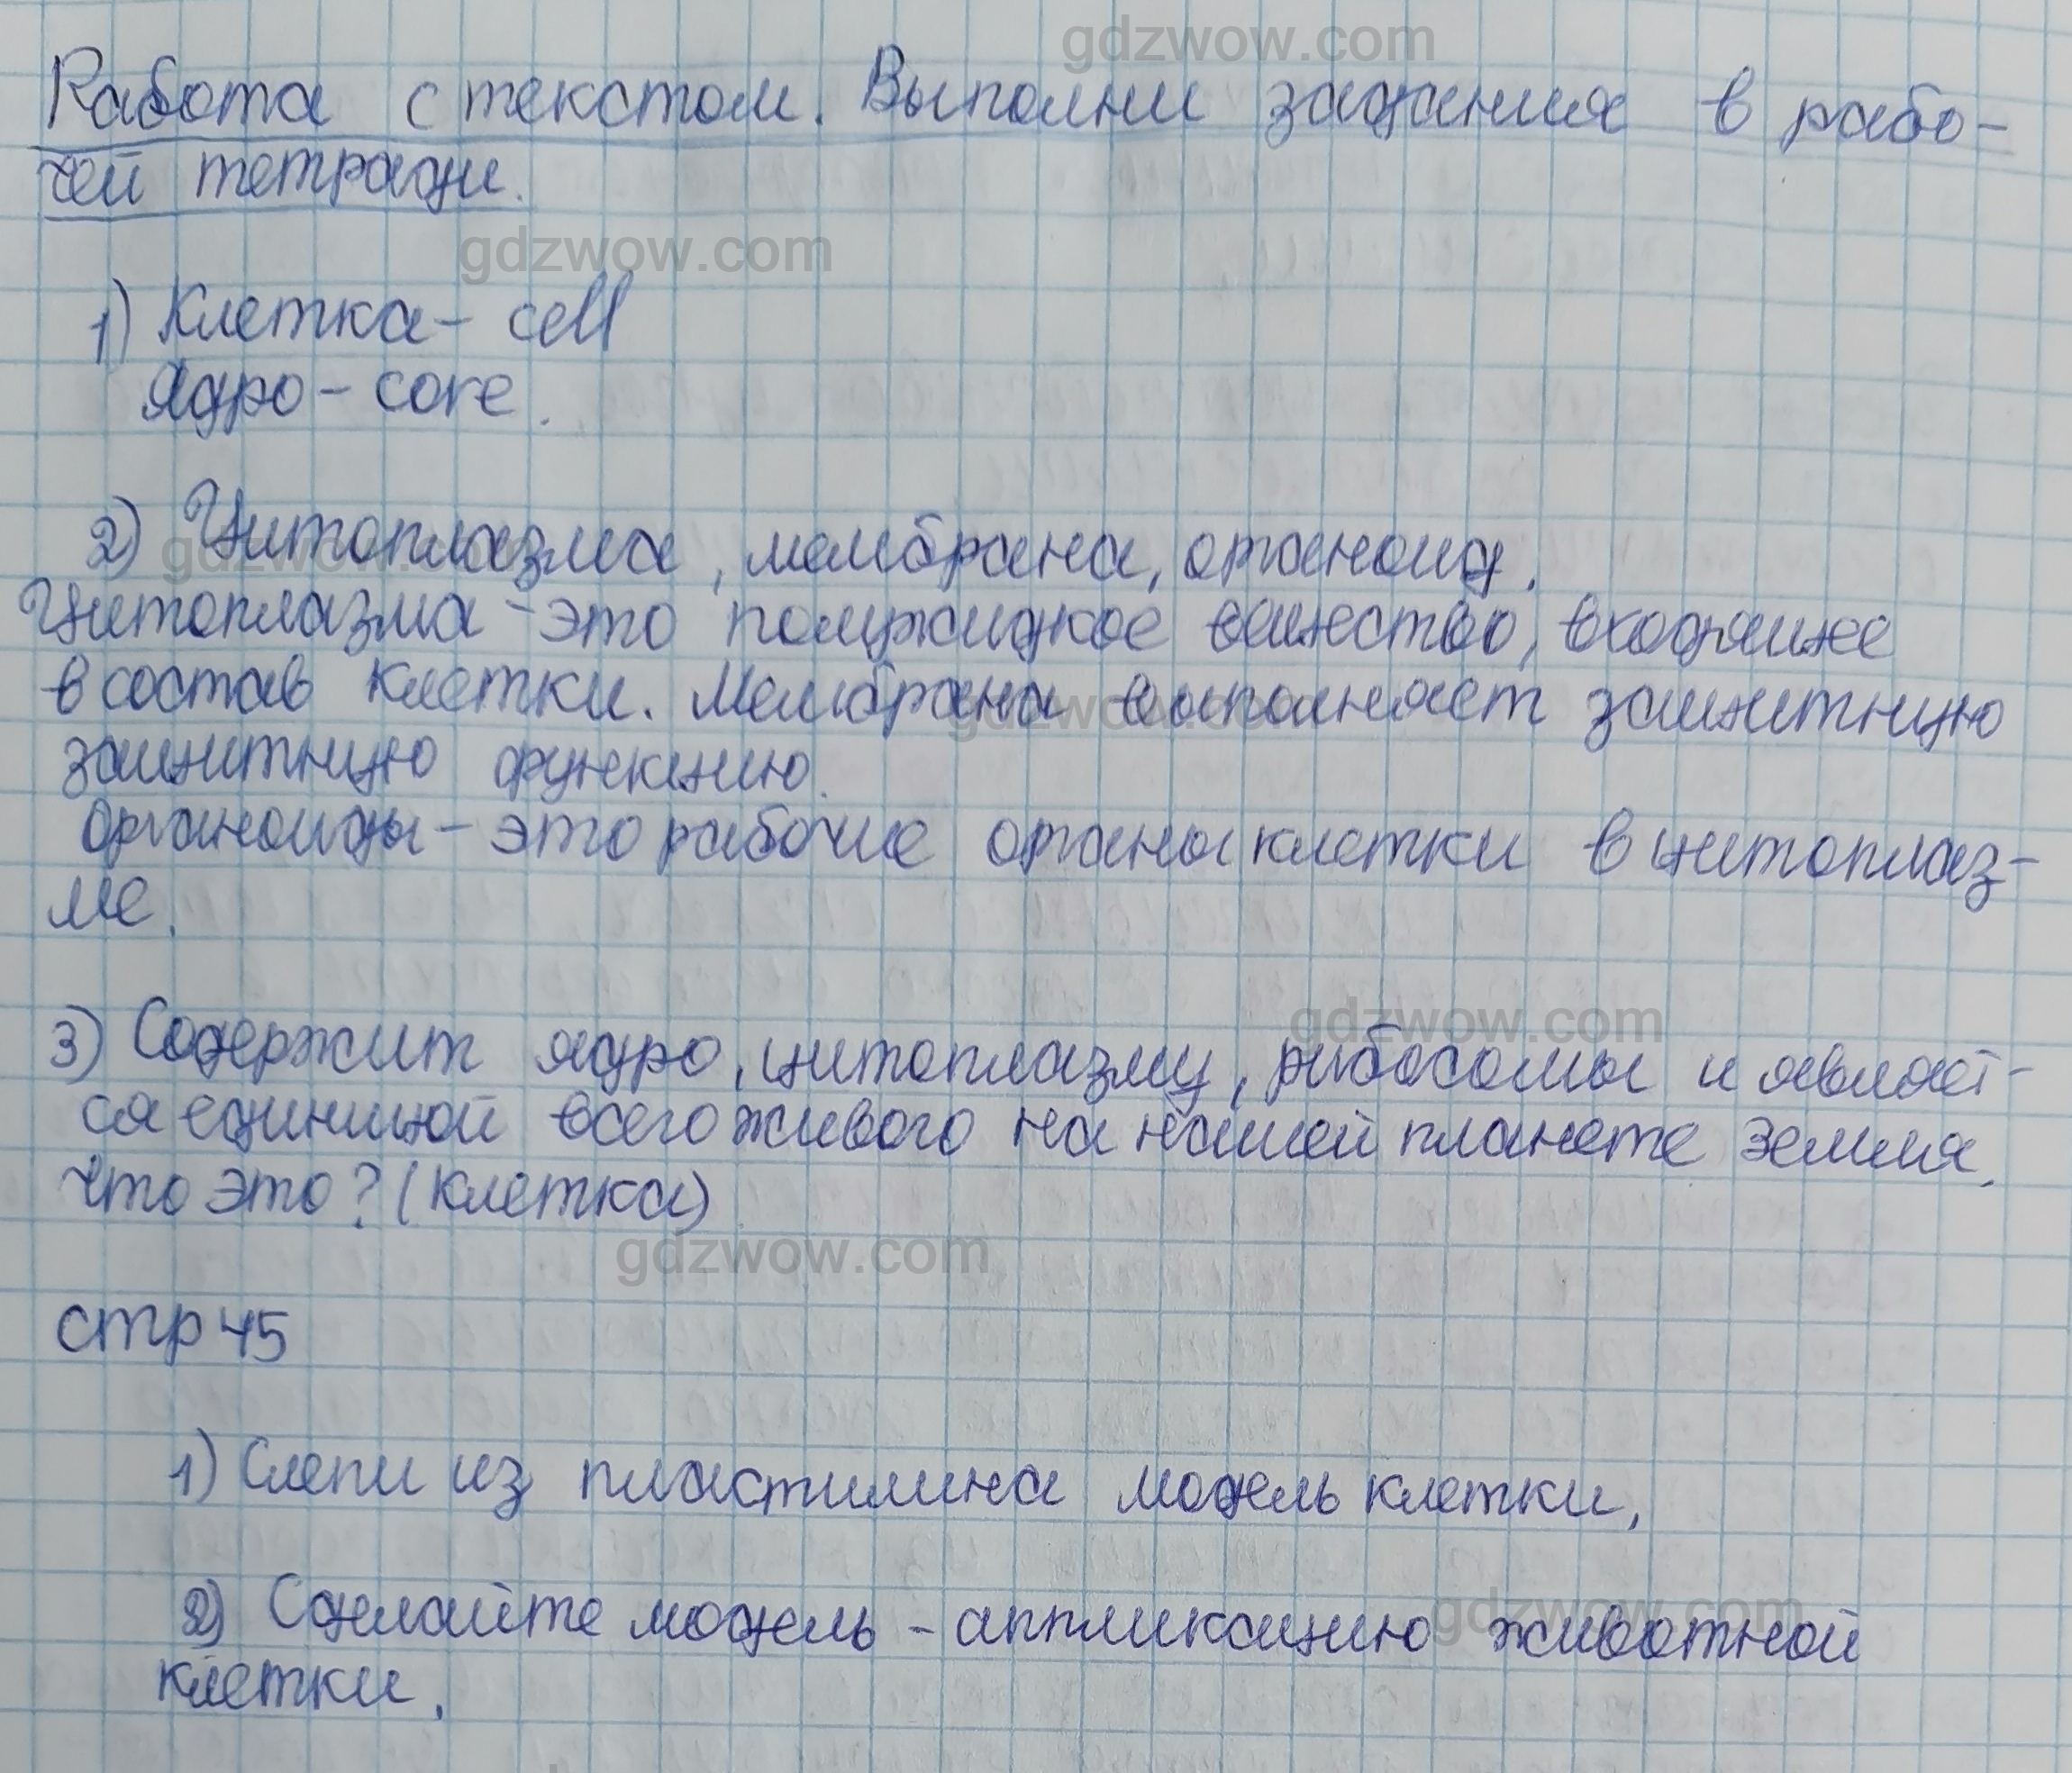 gdzwow.com
Работа с текстом. Выполни задания в рабо-
чей тетради.
gdzwow.com
1) Клетка - cell
Ядро - core.
2) Цитоплазма, мембрана, органоид.
gdzwow.com
Цитоплазма - это полужидкое вещество, входящее
в состав клетки. Мембрана выполняет защитную
gdzwow.com
защитную функцию.
Органоиды - это рабочие органы клетки в цитоплаз-
ме.
gdzwow.com
3) Содержит ядро, цитоплазму, рибосомы и являет-
ся единицой всего живого на нашей планете Земля.
Что это? (клетка)
gdzwow.com
стр 45
1) Слепи из пластилина модель клетки,
2) Сделайте модель - аппликацию животной
gdzwow.com
клетки.